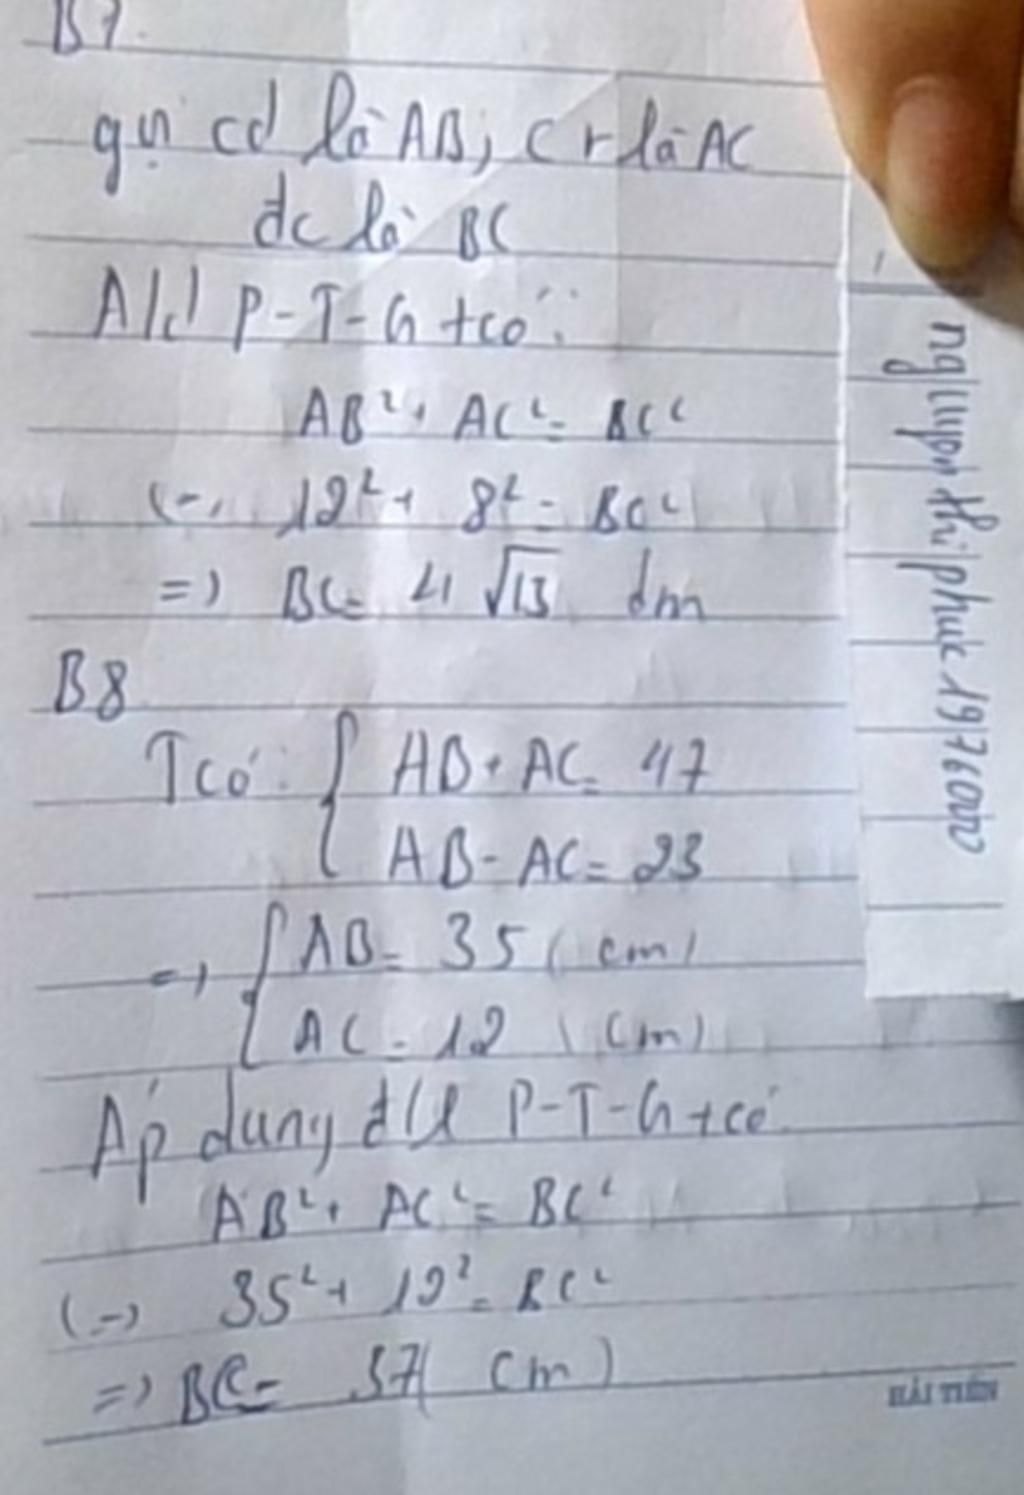 B7.
gọi cd là AB, cr là AC
đc là BC
Ald P-T-G tcó:
AB² + AC² = BC²
(=) 12² + 8² = BC²
=) BC = 4√13 dm
B8
Tcó: { AB + AC = 47
AB - AC = 23
=) { AB = 35 (cm)
AC = 12 (cm)
Áp dung đ/l P-T-G tcó
AB² + AC² = BC²
(=) 35² + 12² = BC²
=) BC = 37 (cm)
HẢI TIẾN
nguyen thi phuc 1976000